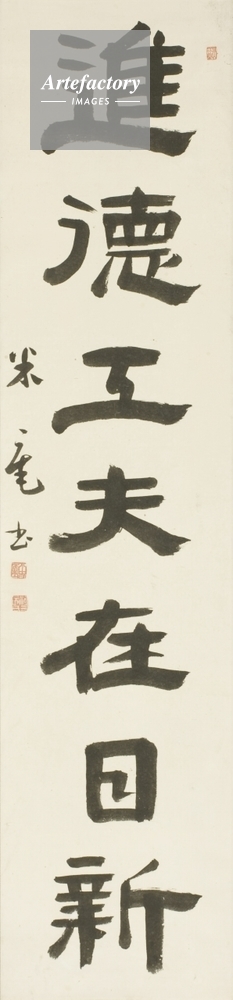 進德工夫在日新
米庵书
Artefactory
IMAGES